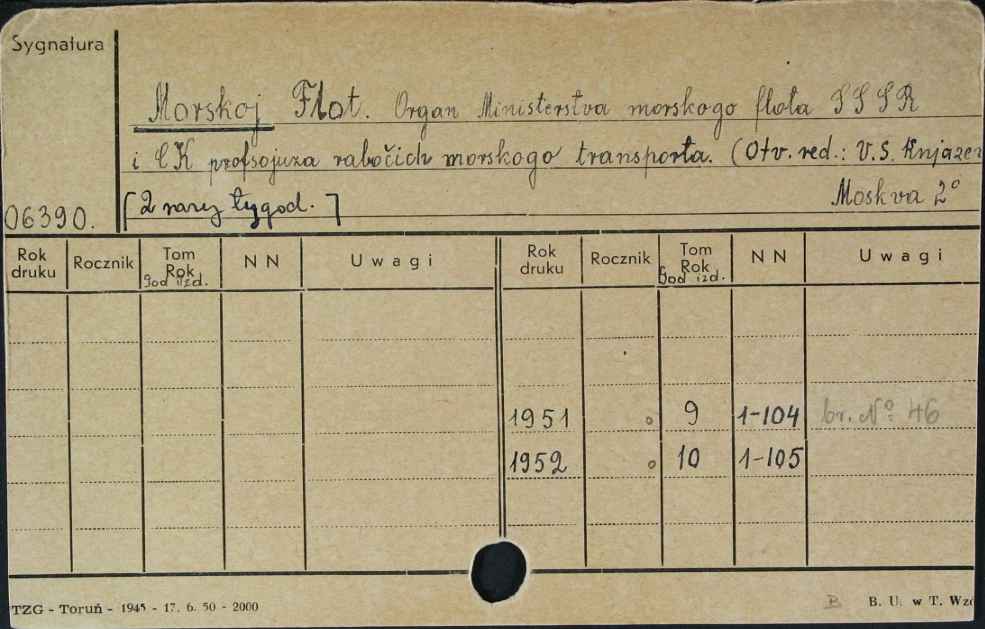 Sygnatura
Morskoj Flot. Organ Ministerstva morskogo flota SSSR
i CK profsojuza rabočich morskogo transporta. (Otv. red.: V.S. Knjazev
06390. [2 razy tygod.] Moskva 2°
Rok druku Rocznik Tom Rok God izd. NN Uwagi Rok druku Rocznik Tom Rok God izd. NN Uwagi
1951 ° 9 1-104 br. № 46
1952 ° 10 1-105
TZG - Toruń - 1945 - 17. 6. 50 - 2000 B B. U. w T. Wzó